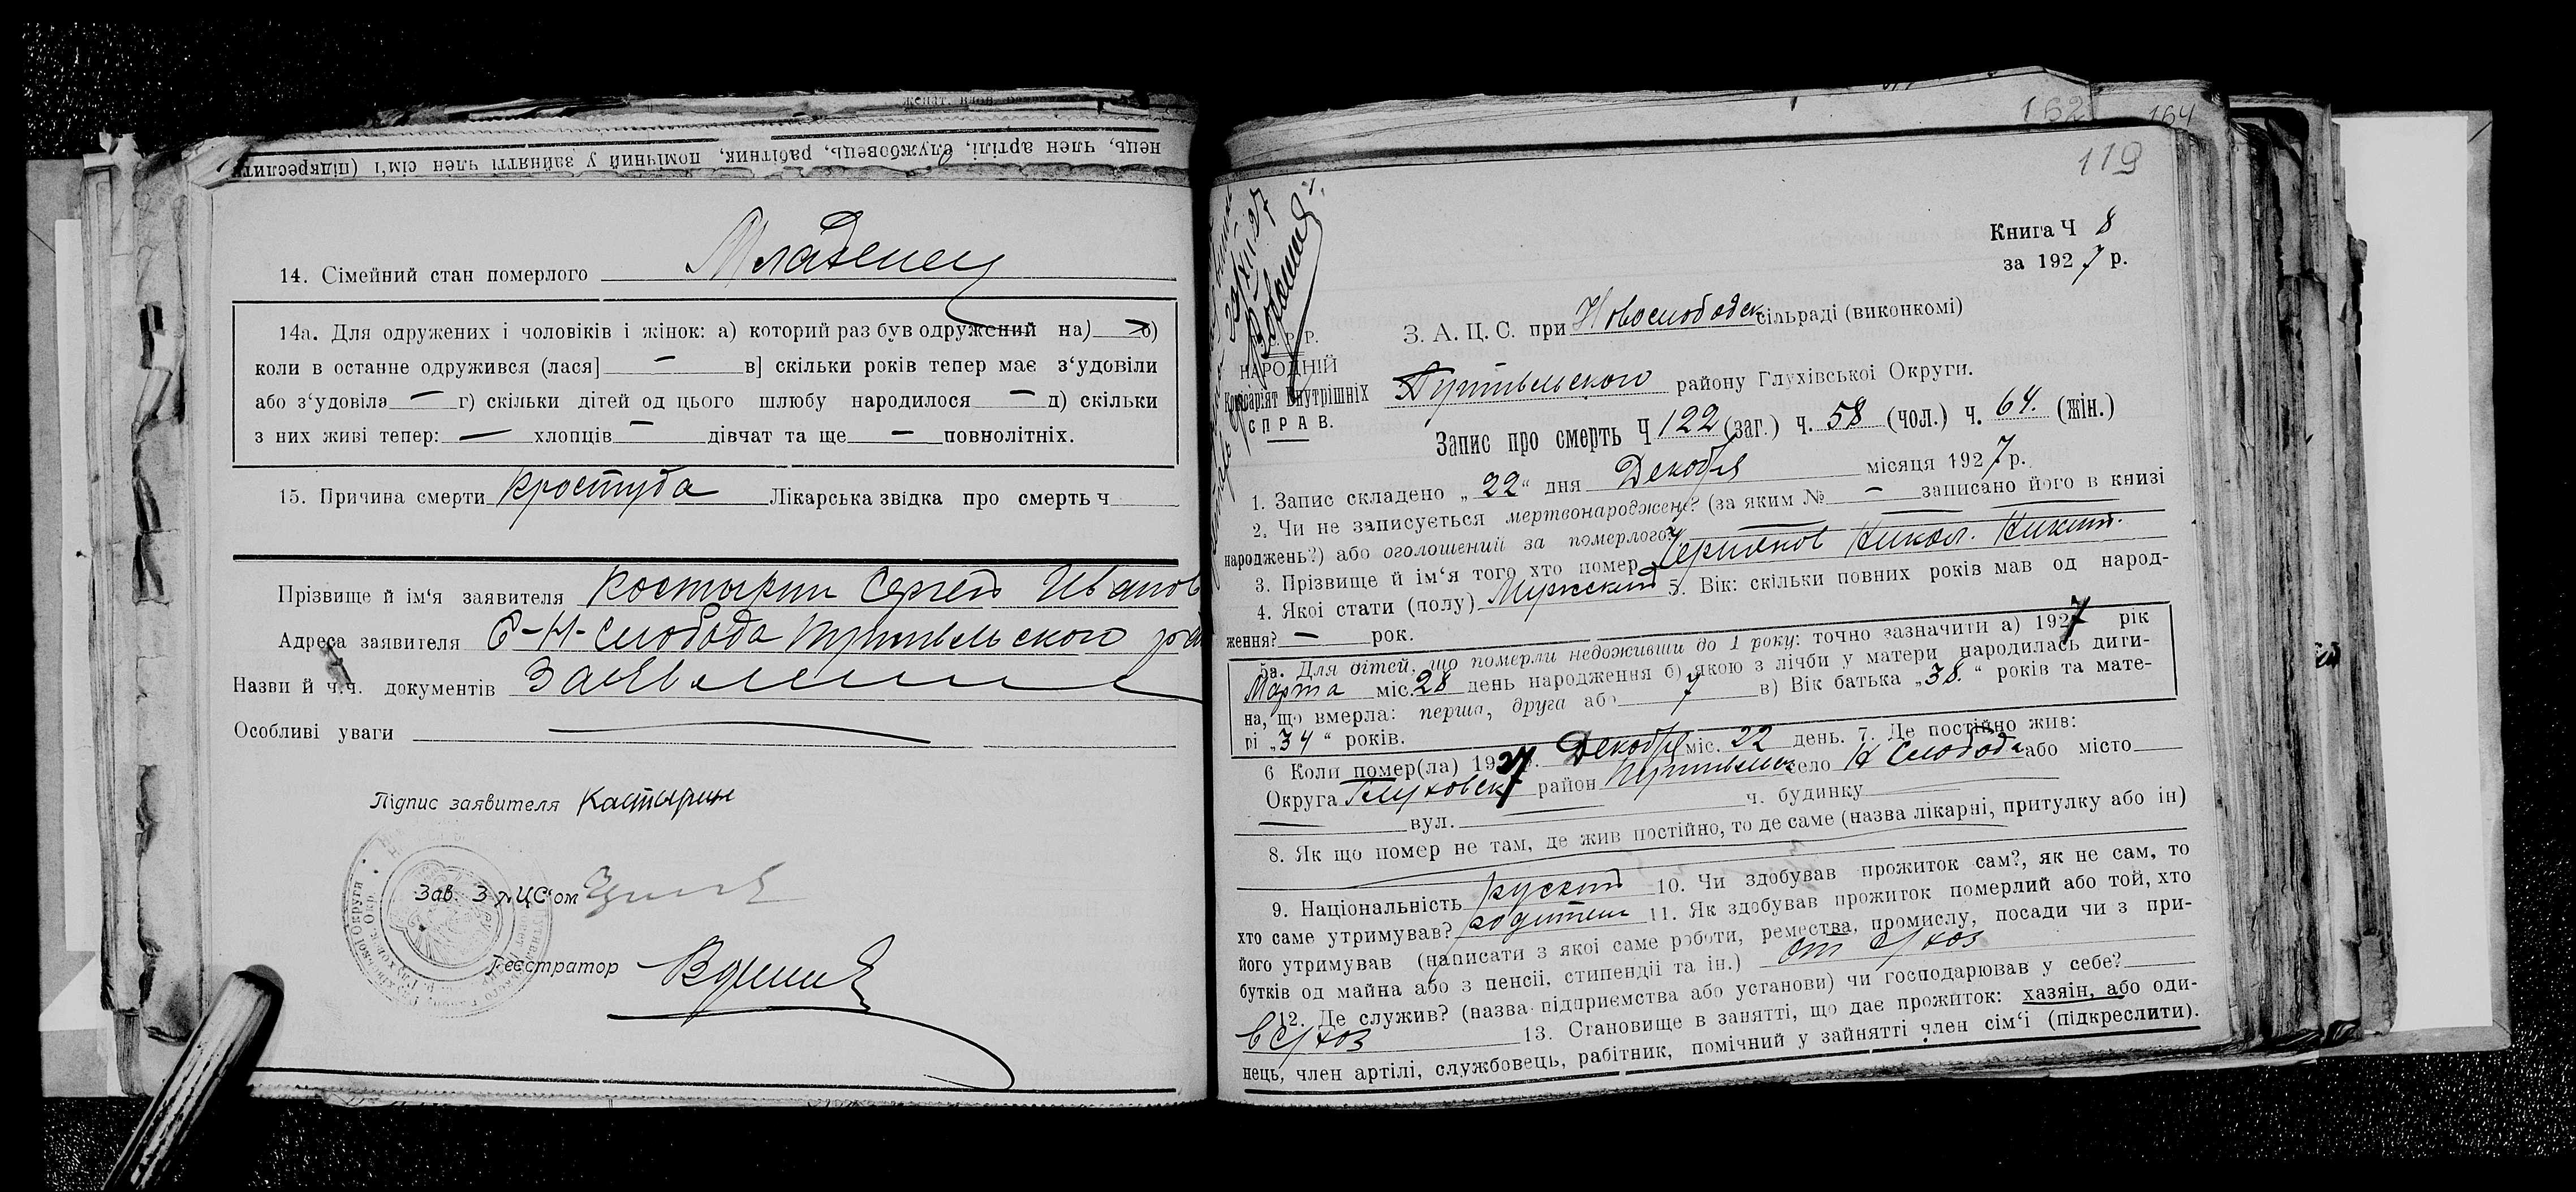 нець, член артілі, службовець, рабітник, помічний у зайнятті член сім'ї (підкреслити
14. Сімейний стан померлого Младенец
14а. Для одружених і чоловіків і жінок: а) которий раз був одружений на) — б)
коли в останне одружився (лася] — в] скільки років тепер має з'удовіли
або з'удовіла — г) скільки дітей од цього шлюбу народилося — д) скільки
з них живі тепер: — хлопців — дівчат та ще — повнолітніх.
15. Причина смерти простуда Лікарська звідка про смерть ч
Прізвище й ім'я заявителя Костырин Сергей Иванов
Адреса заявителя С-Н-Слобода Путивльского ра
Назви й ч.ч. документів Заявление
Особливі уваги
Підпис заявителя Кастырин
Зав. ЗАЦС'ом
Реєстратор
162
164
119
Книга Ч 8
за 1927 р.
29/XII-27
Р. Р.
НАРОДНІЙ
Комісаріят Внутрішніх
СПРАВ.
З. А. Ц. С. при Новослободск сільраді (виконкомі)
Путивльского району Глухівської Округи.
Запис про смерть Ч 122 (заг.) ч. 58 (чол.) ч. 64. (жін.)
1. Запис складено „22“ дня Декабря місяця 1927 р.
2. Чи не записується мертвонароджене? (за яким № — записано його в книзі
народжень?) або оголошений за померлого?
3. Прізвище й ім'я того хто помер Никол. Никит.
4. Якої стати (полу) Мужской 5. Вік: скільки повних років мав од народ-
ження? — рок.
5а. Для дітей, що померли недоживши до 1 року: точно зазначити а) 1927 рік
Марта міс. 28 день народження б) якою з лічби у матери народилась дити-
на, що вмерла: перша, друга або 7 в) Вік батька „38.“ років та мате-
рі „34“ років.
6 Коли помер(ла) 1927 р. Декабря міс. 22 день. 7. Де постійно жив:
Округа Глуховск район Путивльск село Н Слобода або місто
вул. ч. будинку
8. Як що помер не там, де жив постійно, то де саме (назва лікарні, притулку або ін)
9. Національність руский 10. Чи здобував прожиток сам?, як не сам, то
хто саме утримував? родители 11. Як здобував прожиток померлий або той, хто
його утримував (написати з якої саме роботи, ремества, промислу, посади чи з при-
бутків од майна або з пенсії, стипендії та ін.) от с/хоз
12. Де служив? (назва підприємства або установи) чи господарював у себе?
в с/хоз 13. Становище в занятті, що дає прожиток: хазяін, або оди-
нець, член артілі, службовець, рабітник, помічний у зайнятті член сім'ї (підкреслити).